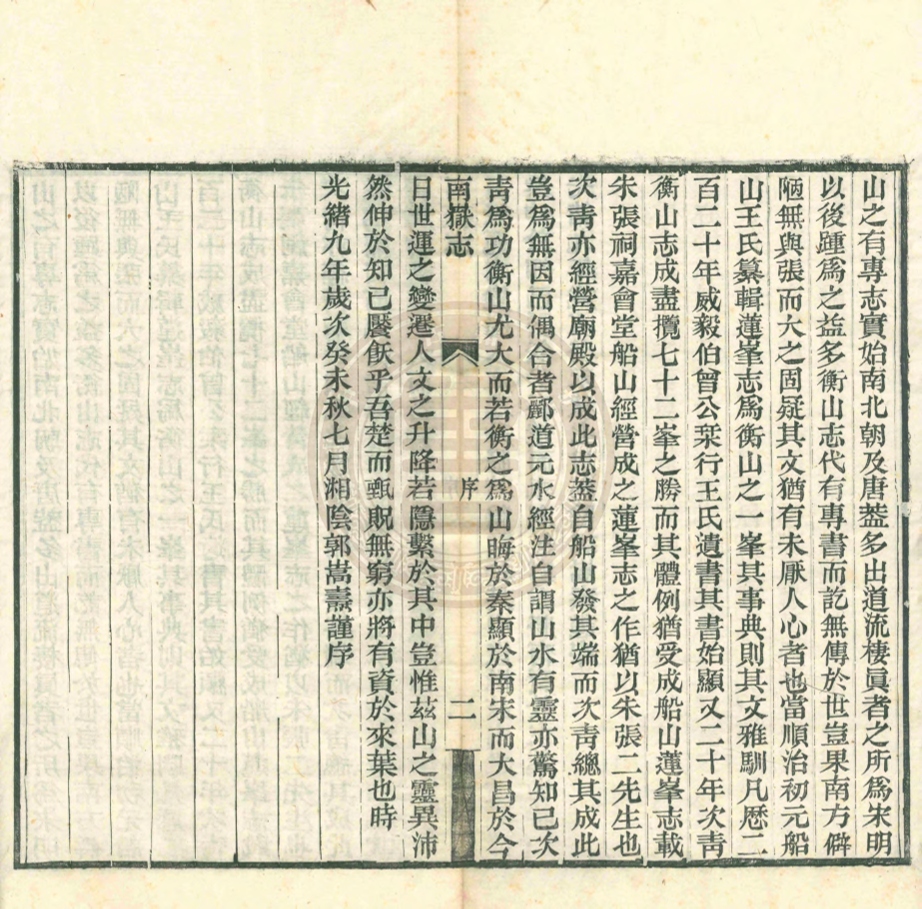 山之有專志實始南北朝及唐葢多出道流棲眞者之所爲宋明
以後踵爲之益多衡山志代有專書而訖無傳於世豈果南方僻
陋無與張而大之固疑其文猶有未厭人心者也當順治初元船
山王氏纂輯蓮峯志爲衡山之一峯其事典則其文雅馴凡歷二
百二十年威毅伯曾公栞行王氏遺書其書始顯又二十年次靑
衡山志成盡攬七十二峯之勝而其體例猶受成船山蓮峯志載
朱張祠嘉會堂船山經營成之蓮峯志之作猶以朱張二先生也
次靑亦經營廟殿以成此志葢自船山發其端而次靑總其成此
豈爲無因而偶合者酈道元水經注自謂山水有靈亦驚知己次
靑爲功衡山尤大而若衡之爲山晦於秦顯於南宋而大昌於今
南嶽志 序 二
日世運之變遷人文之升降若隱繫於其中豈惟茲山之靈異沛
然伸於知己饜飫乎吾楚而甄貺無窮亦將有資於來葉也時
光緖九年歲次癸未秋七月湘陰郭嵩燾謹序